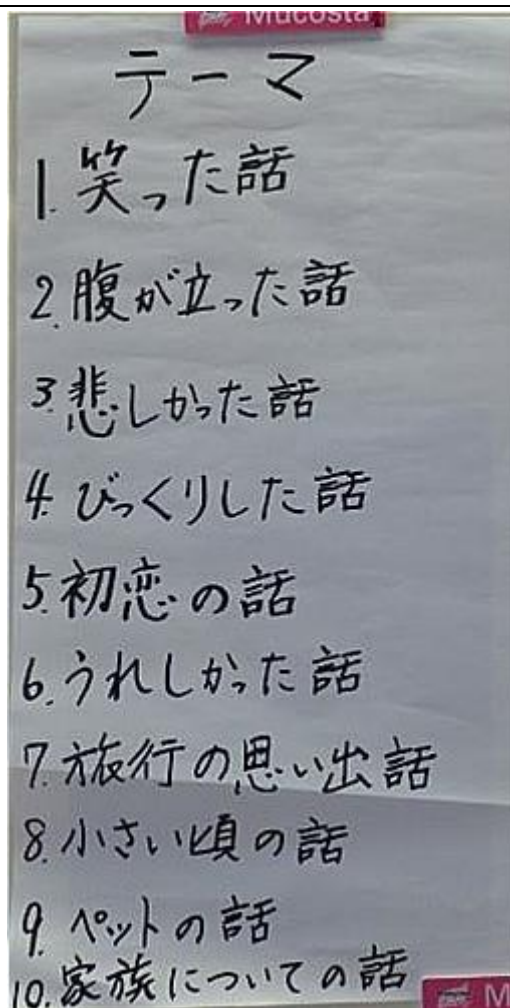 Mucosta
テーマ
1. 笑った話
2. 腹が立った話
3. 悲しかった話
4. びっくりした話
5. 初恋の話
6. うれしかった話
7. 旅行の思い出話
8. 小さい頃の話
9. ペットの話
10. 家族についての話
M